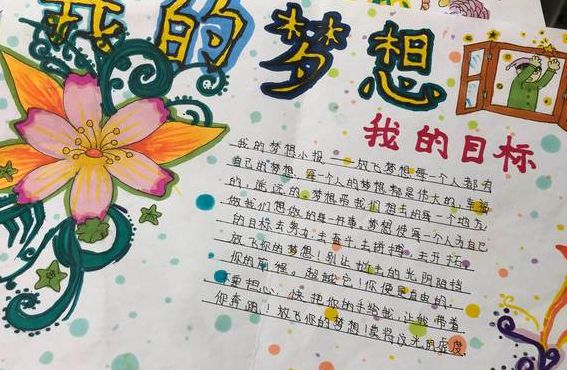 我的梦想
我的目标
我的梦想小报——放飞梦想每一个人都有
自己的梦想,每一个人的梦想都是伟大的,幸福
的,遥远的。梦想带我们想去的每一个地方
做我们想做的每一件事。梦想使每一个人为自己
的目标去努力去奋斗去拼搏,去开拓
放飞你的梦想!别让逝去的光阴阻挡
你的前程。超越它!你便是自由的。
不要担心,快把你的手给我,让我带着
你奔跑!放飞你的梦想!莫将这光阴虚度